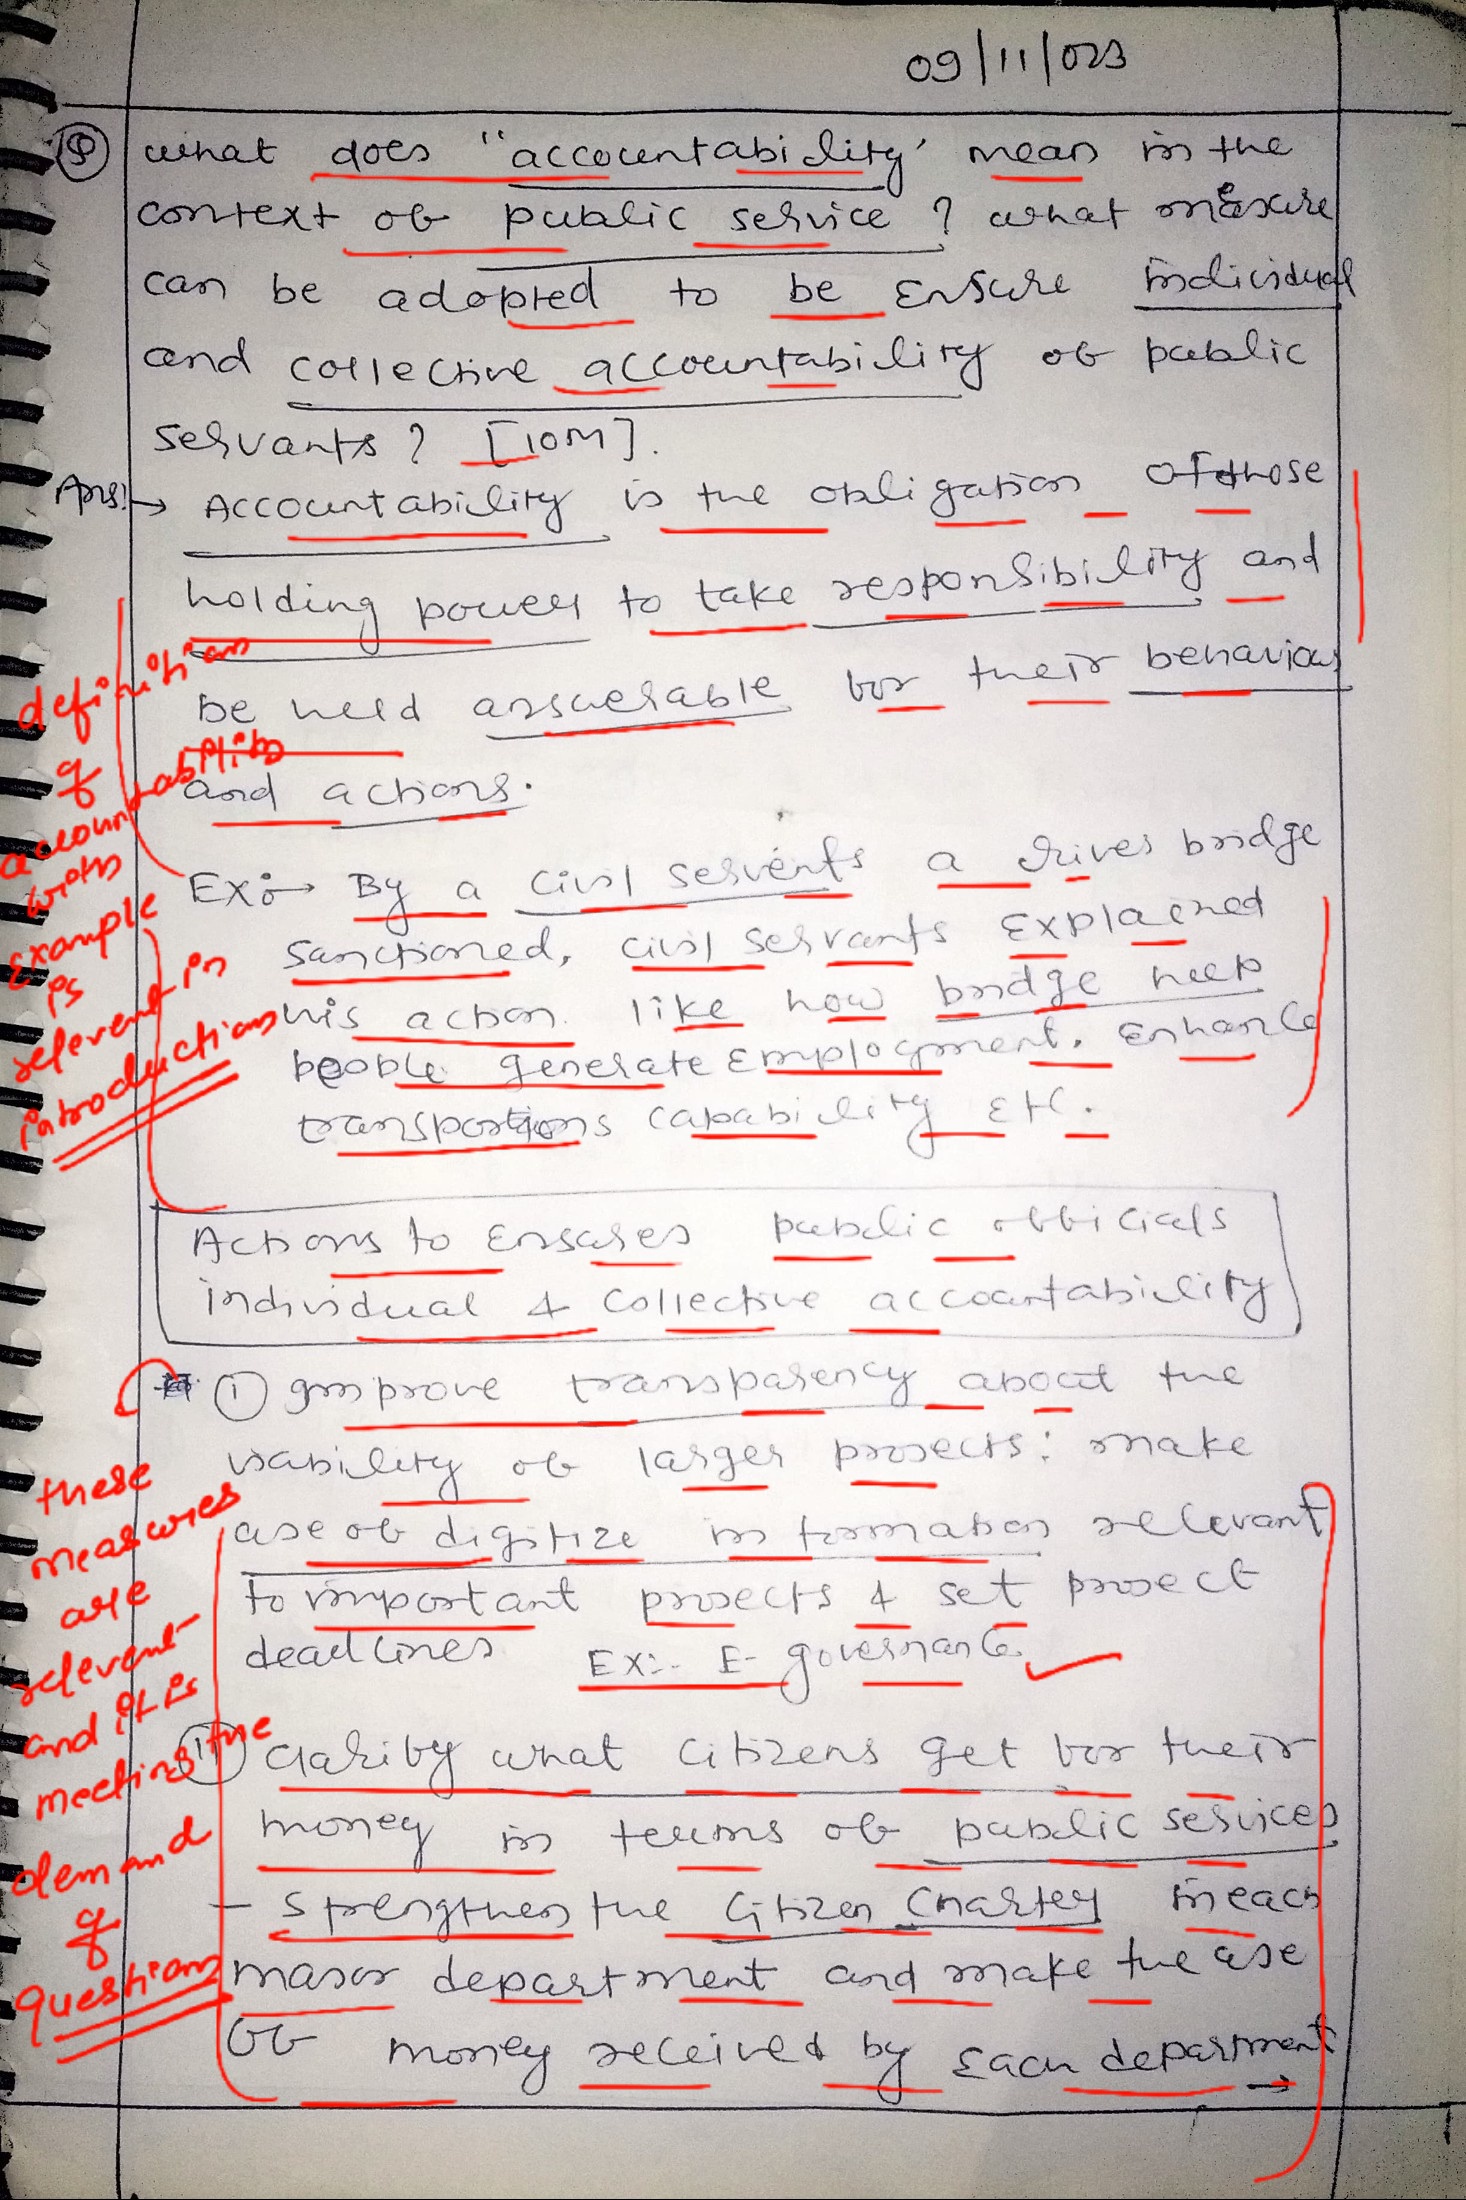 09/11/023
Q what does "accountability' mean in the
context of public service ? what measure
can be adopted to be Ensure individual
and collective accountability of public
servants ? [10M].
Ans:→ Accountability is the obligation of those
holding power to take responsibility and
be held answerable for their behaviour
and actions.
definition
of
accountability
with
example
is
relevent in
introduction
Ex:→ By a civil servents a rives bridge
sanctioned, civil servants Explained
his action. like how bridge help
people generate Employment. Enhance
transportions capability Etc.
Actions to Ensures public officials
individual & collective accountability
① Improve transparency about the
viability of larger projects: make
use of digitize information relevant
to important projects & set project
deadlines Ex:- E-governance
these
measures
are
relevent
and it is
meeting the
demand
of
question
ii clarify what citizens get for their
money in terms of public services
- Strengthen the Citizen Charter in each
major department and make the use
of money received by Each department
→